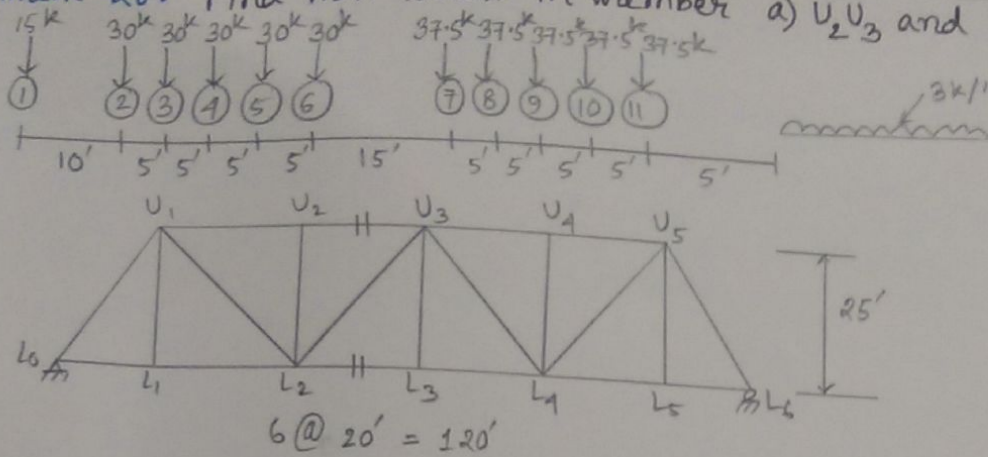 in member a) U2U3 and
15k 30k 30k 30k 30k 30k 37.5k 37.5k 37.5k 37.5k 37.5k
1 2 3 4 5 6 7 8 9 10 11 3k/'
10' 5' 5' 5' 5' 15' 5' 5' 5' 5' 5'
U1 U2 U3 U4 U5
25'
L0 L1 L2 L3 L4 L5 L6
6 @ 20' = 120'